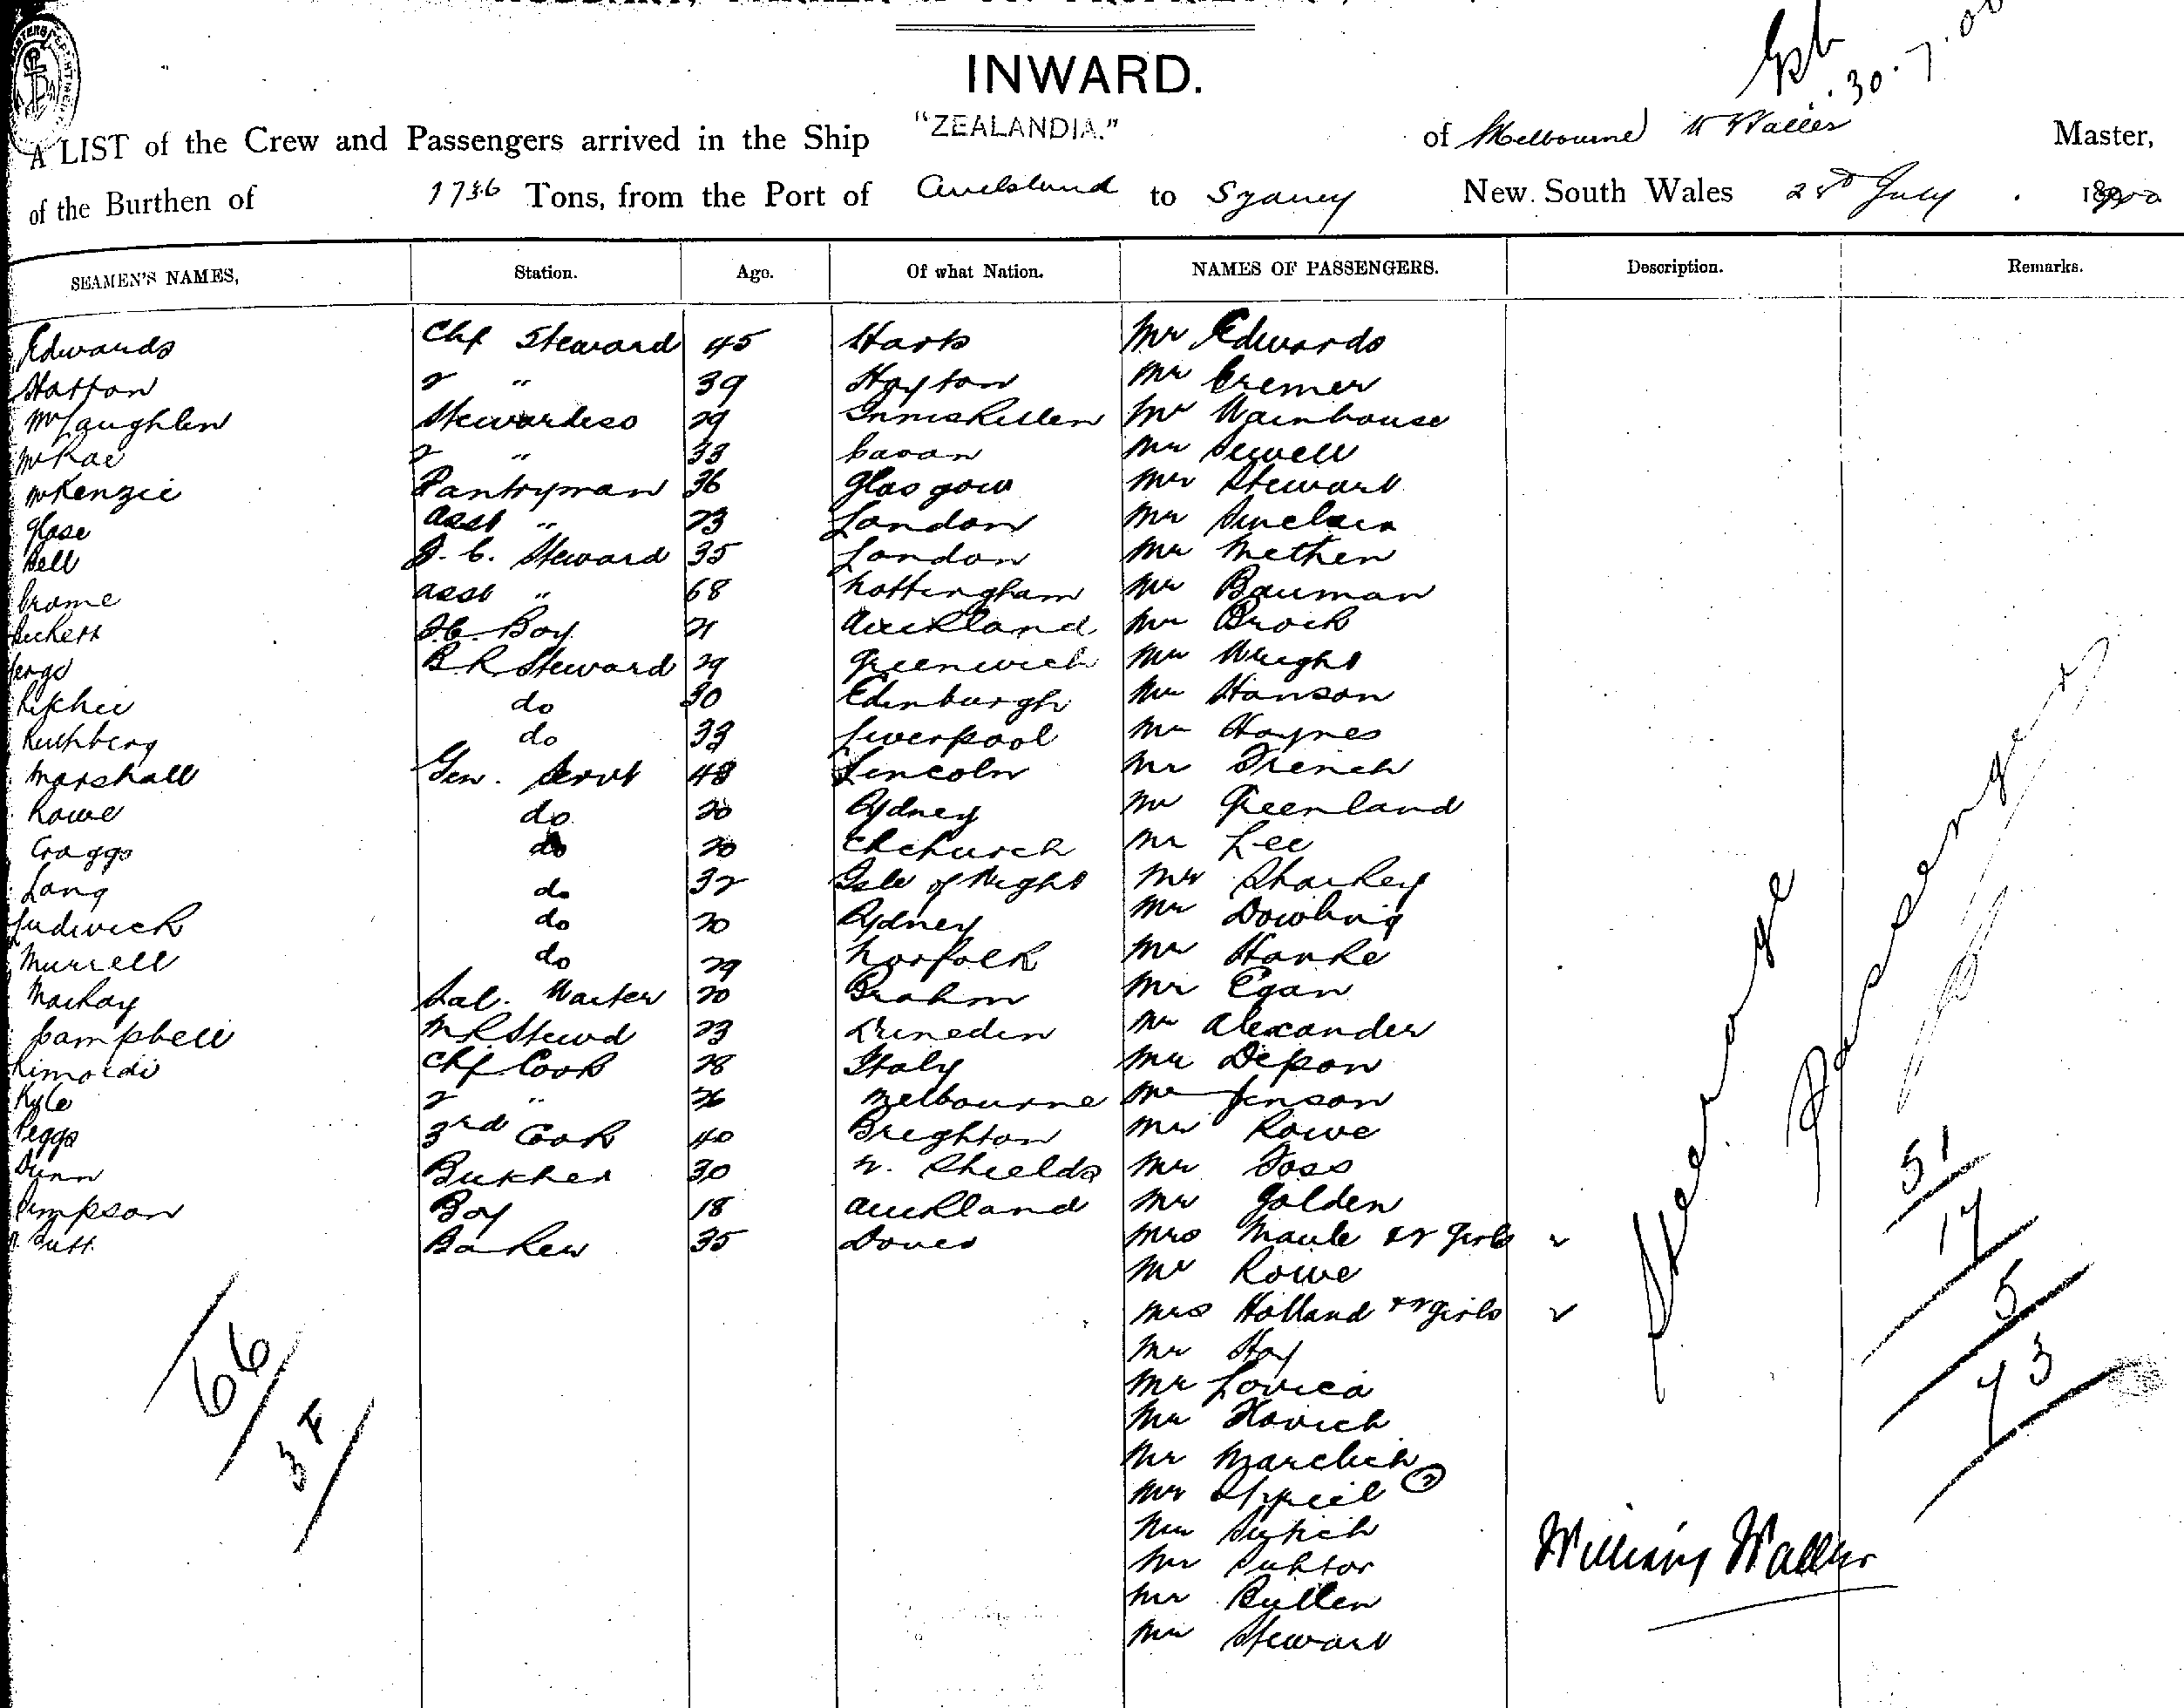 INWARD.
A LIST of the Crew and Passengers arrived in the Ship "ZEALANDIA." of Melbourne W Waller Master,
of the Burthen of Tons, from the Port of Auckland to Sydney New South Wales July 1900
30.7.00
SEAMEN'S NAMES, Station. Age. Of what Nation. NAMES OF PASSENGERS. Description. Remarks.
Edwards Chf Steward 45 Harts Mr Edwards
Hatton 2 " 39 Hoyton Mr Cremer
McLaughlen Stewardess 29 Inniskillen Mr Wainhouse
McRae 2 " 33 Cavan Mr Sewell
McKenzie Pantryman 36 Glasgow Mr Stewart
Glase asst " 23 London Mr Sinclair
Bell F.C. Steward 35 London Mr Methen
Crome asst " 68 Nottingham Mr Bauman
F.C. Boy 21 Auckland Mr Brock
B.R. Steward 29 Greenwich Mr Wright
Ritchie do 30 Edinburgh Mr Hanson
Ruthberg do 33 Liverpool Mr Haynes
Marshall Gen. Servt 48 Lincoln Mr French
Rowe do 20 Sydney Mr Greenland
Craggs do 20 Chchurch Mr Lee
Lang do 32 Isle of Wight Mr Sharkey
Ludwick do 20 Sydney Mr Dowling
Murrell do 29 Norfolk Mr Hanke
Mackay Sal. Waiter 20 Mr Egan
Campbell M R Stewd 23 Dunedin Mr Alexander
Rimoldi Chf Cook 28 Italy Mr Depon
Kyle 2 " 26 Melbourne Mr Jenson
Peggs 3rd Cook 40 Brighton Mr Rowe
Dunn Butcher 30 N. Shields Mr Foss
Simpson Boy 18 Auckland Mr Golden
Butt Baker 35 Dover Mrs Maule & 2 girls
Mr Rowe
Mrs Holland & 2 girls
Mr Hay
Mr Lovica
Mr
Mr
Mr
Mr
Mr
Mr Bullen
Mr Stewart
Steerage Passengers
51
17
5
73
66
3 F
William Waller